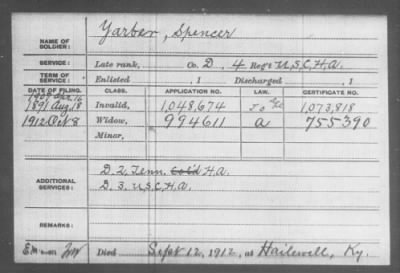 NAME OF SOLDIER: Yarber, Spencer
SERVICE: Late rank, Co. D, 4 Reg't U.S.C.H.A.
TERM OF SERVICE: Enlisted , 1 Discharged , 1
DATE OF FILING. CLASS. APPLICATION NO. LAW. CERTIFICATE NO.
1891 Aug. 18 Invalid, 1,048,674 1,073,818
1912 Oct 8 Widow, 994611 a 755390
Minor,
ADDITIONAL SERVICES: D. 2, Tenn. Col'd H.A.
D. 3, U.S.C.H.A.
REMARKS:
Died Sept 12, 1912, at Hailewell, Ky.